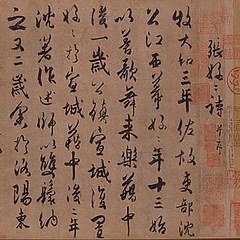 張好〻詩 并序
牧大和三年佐故吏部沈
公江西幕好〻年十三始
以善歌舞来樂籍中
後一歲公鎮宣城復置
好〻於宣城籍中後二年
沈著作述師以雙鬟納
之又二歲余於洛陽東